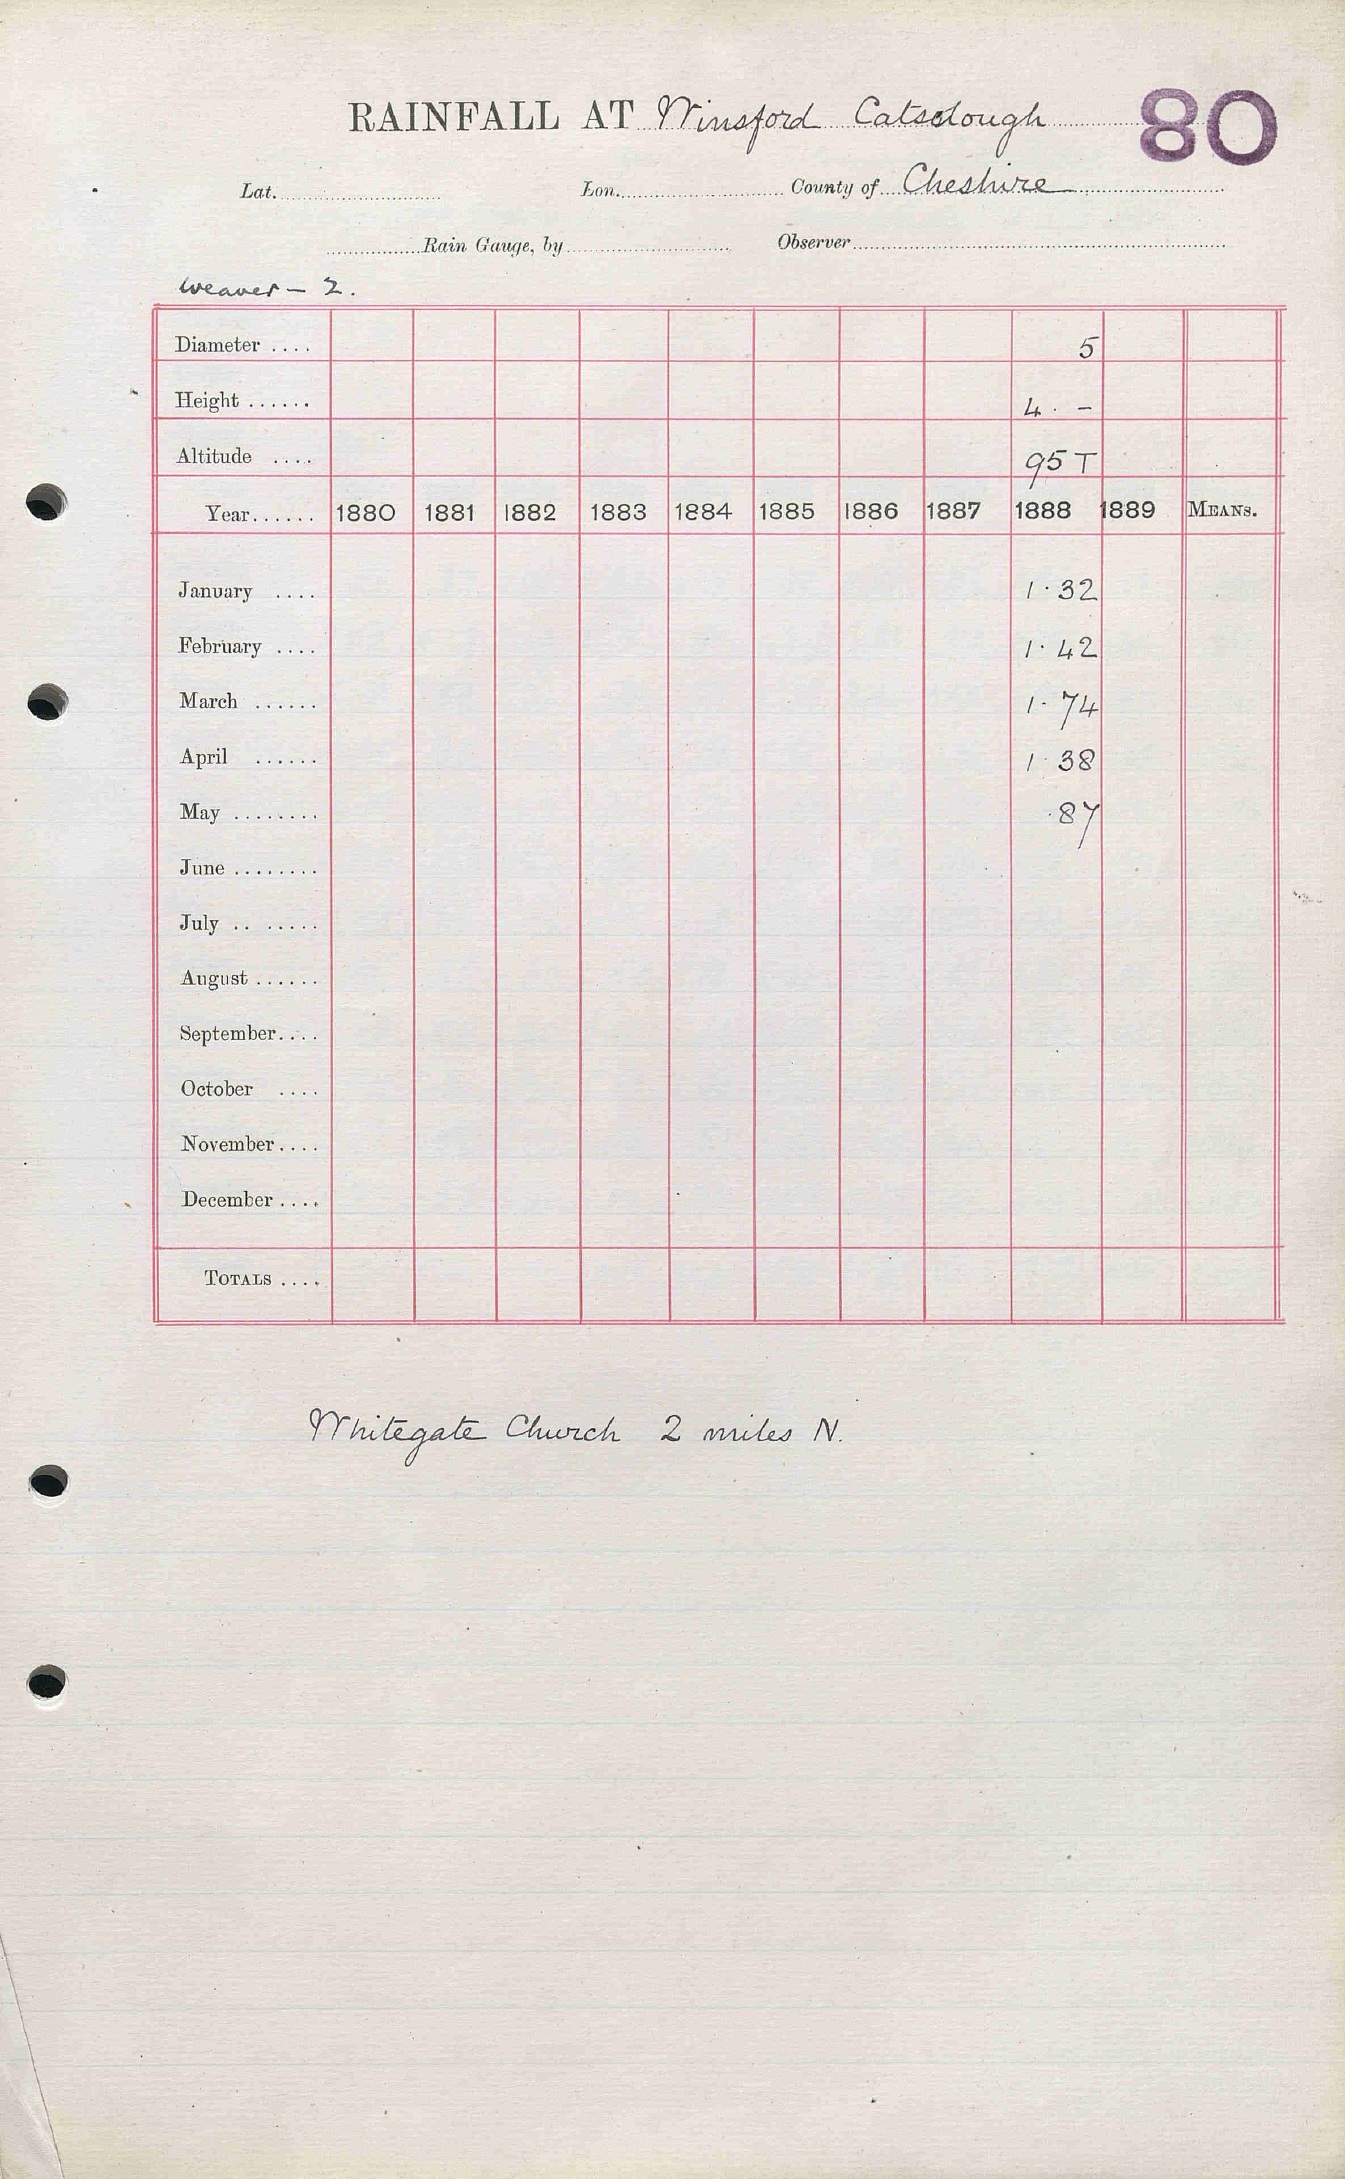 RAINFALL AT Winsford Catsclough 80
Lat. Lon. County of Cheshire
Rain Gauge, by Observer
Weaver - 2.
Diameter .... 5
Height ...... 4. -
Altitude .... 95 T
Year...... 1880 1881 1882 1883 1884 1885 1886 1887 1888 1889 MEANS.
January .... 1.32
February .... 1.42
March ...... 1.74
April ...... 1.38
May ........ .87
June ........
July .. .....
August ......
September....
October ....
November....
December....
TOTALS ....
Whitegate Church 2 miles N.